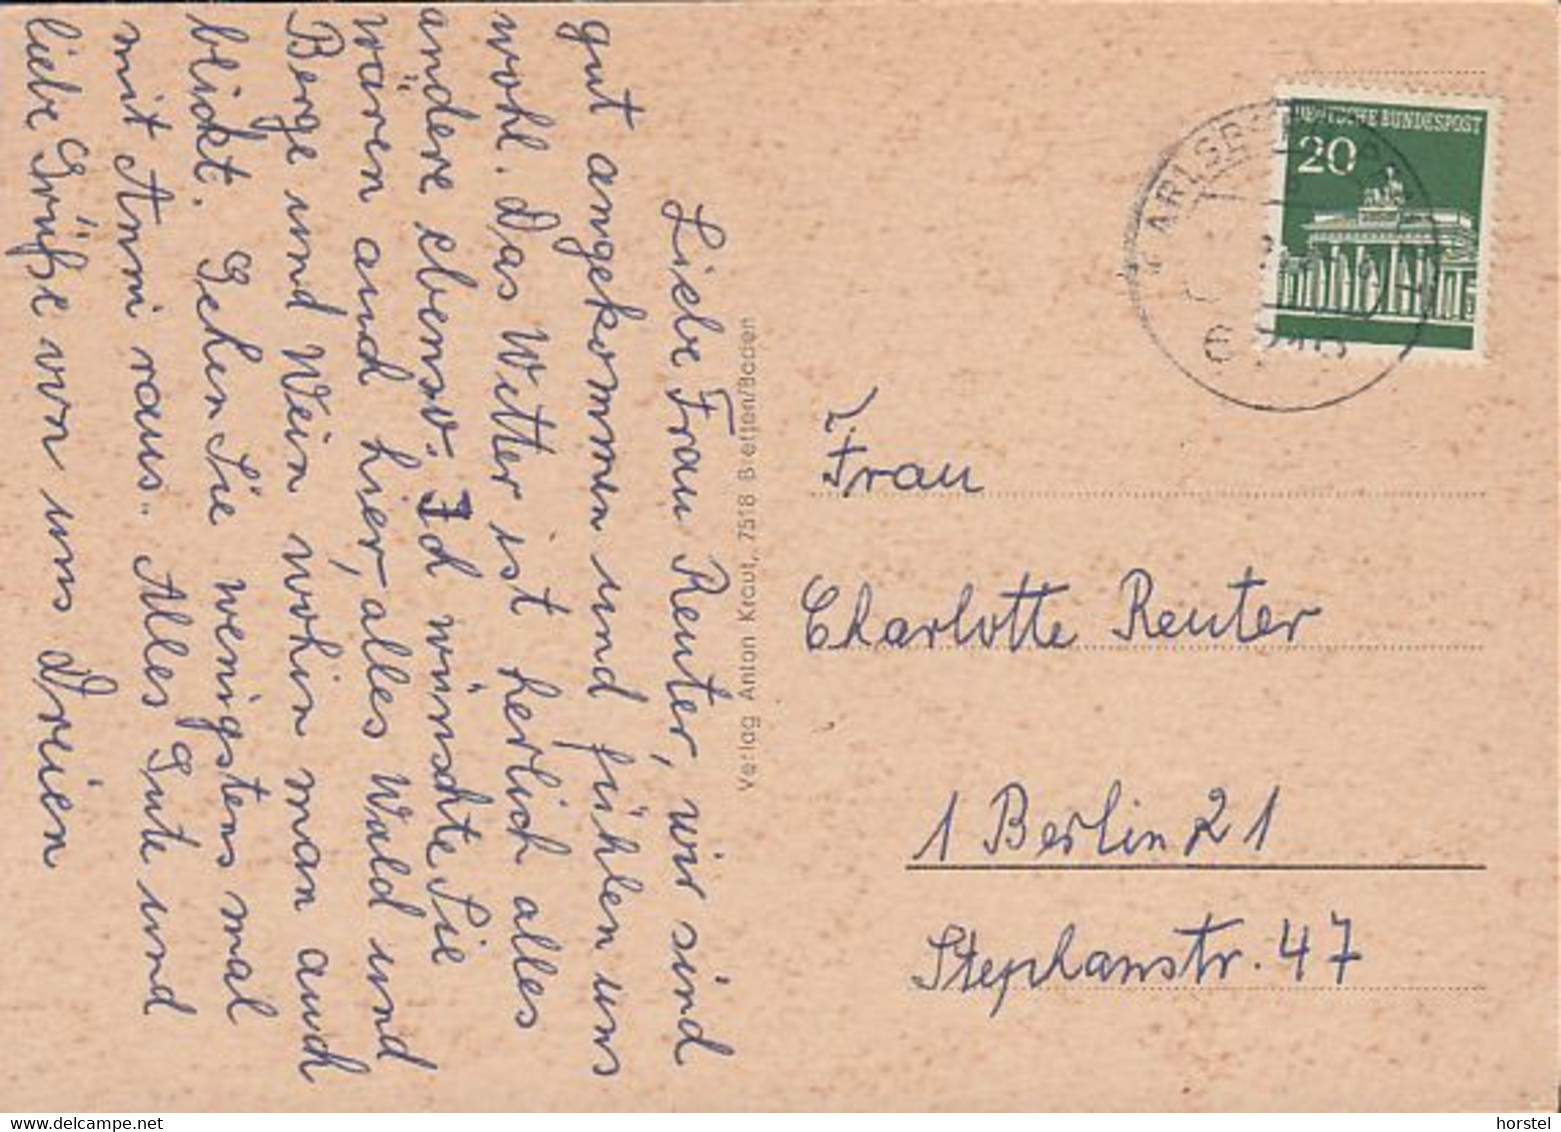 Liebe Frau Reuter, wir sind
gut angekommen und fühlen uns
wohl. Das Wetter ist herlich alles
andere ebenso. Ich wünschte Sie
wären auch hier, alles Wald und
Berge und Wein wohin man auch
blickt. Gehen Sie wenigstens mal
mit Anni raus. Alles Gute und
liebe Grüße von uns Dreien
Verlag Anton Kraut, 7518 Bretten/Baden
DEUTSCHE BUNDESPOST
20
Frau
Charlotte Reuter
1 Berlin 21
Stephanstr. 47
www.delcampe.net
horstel